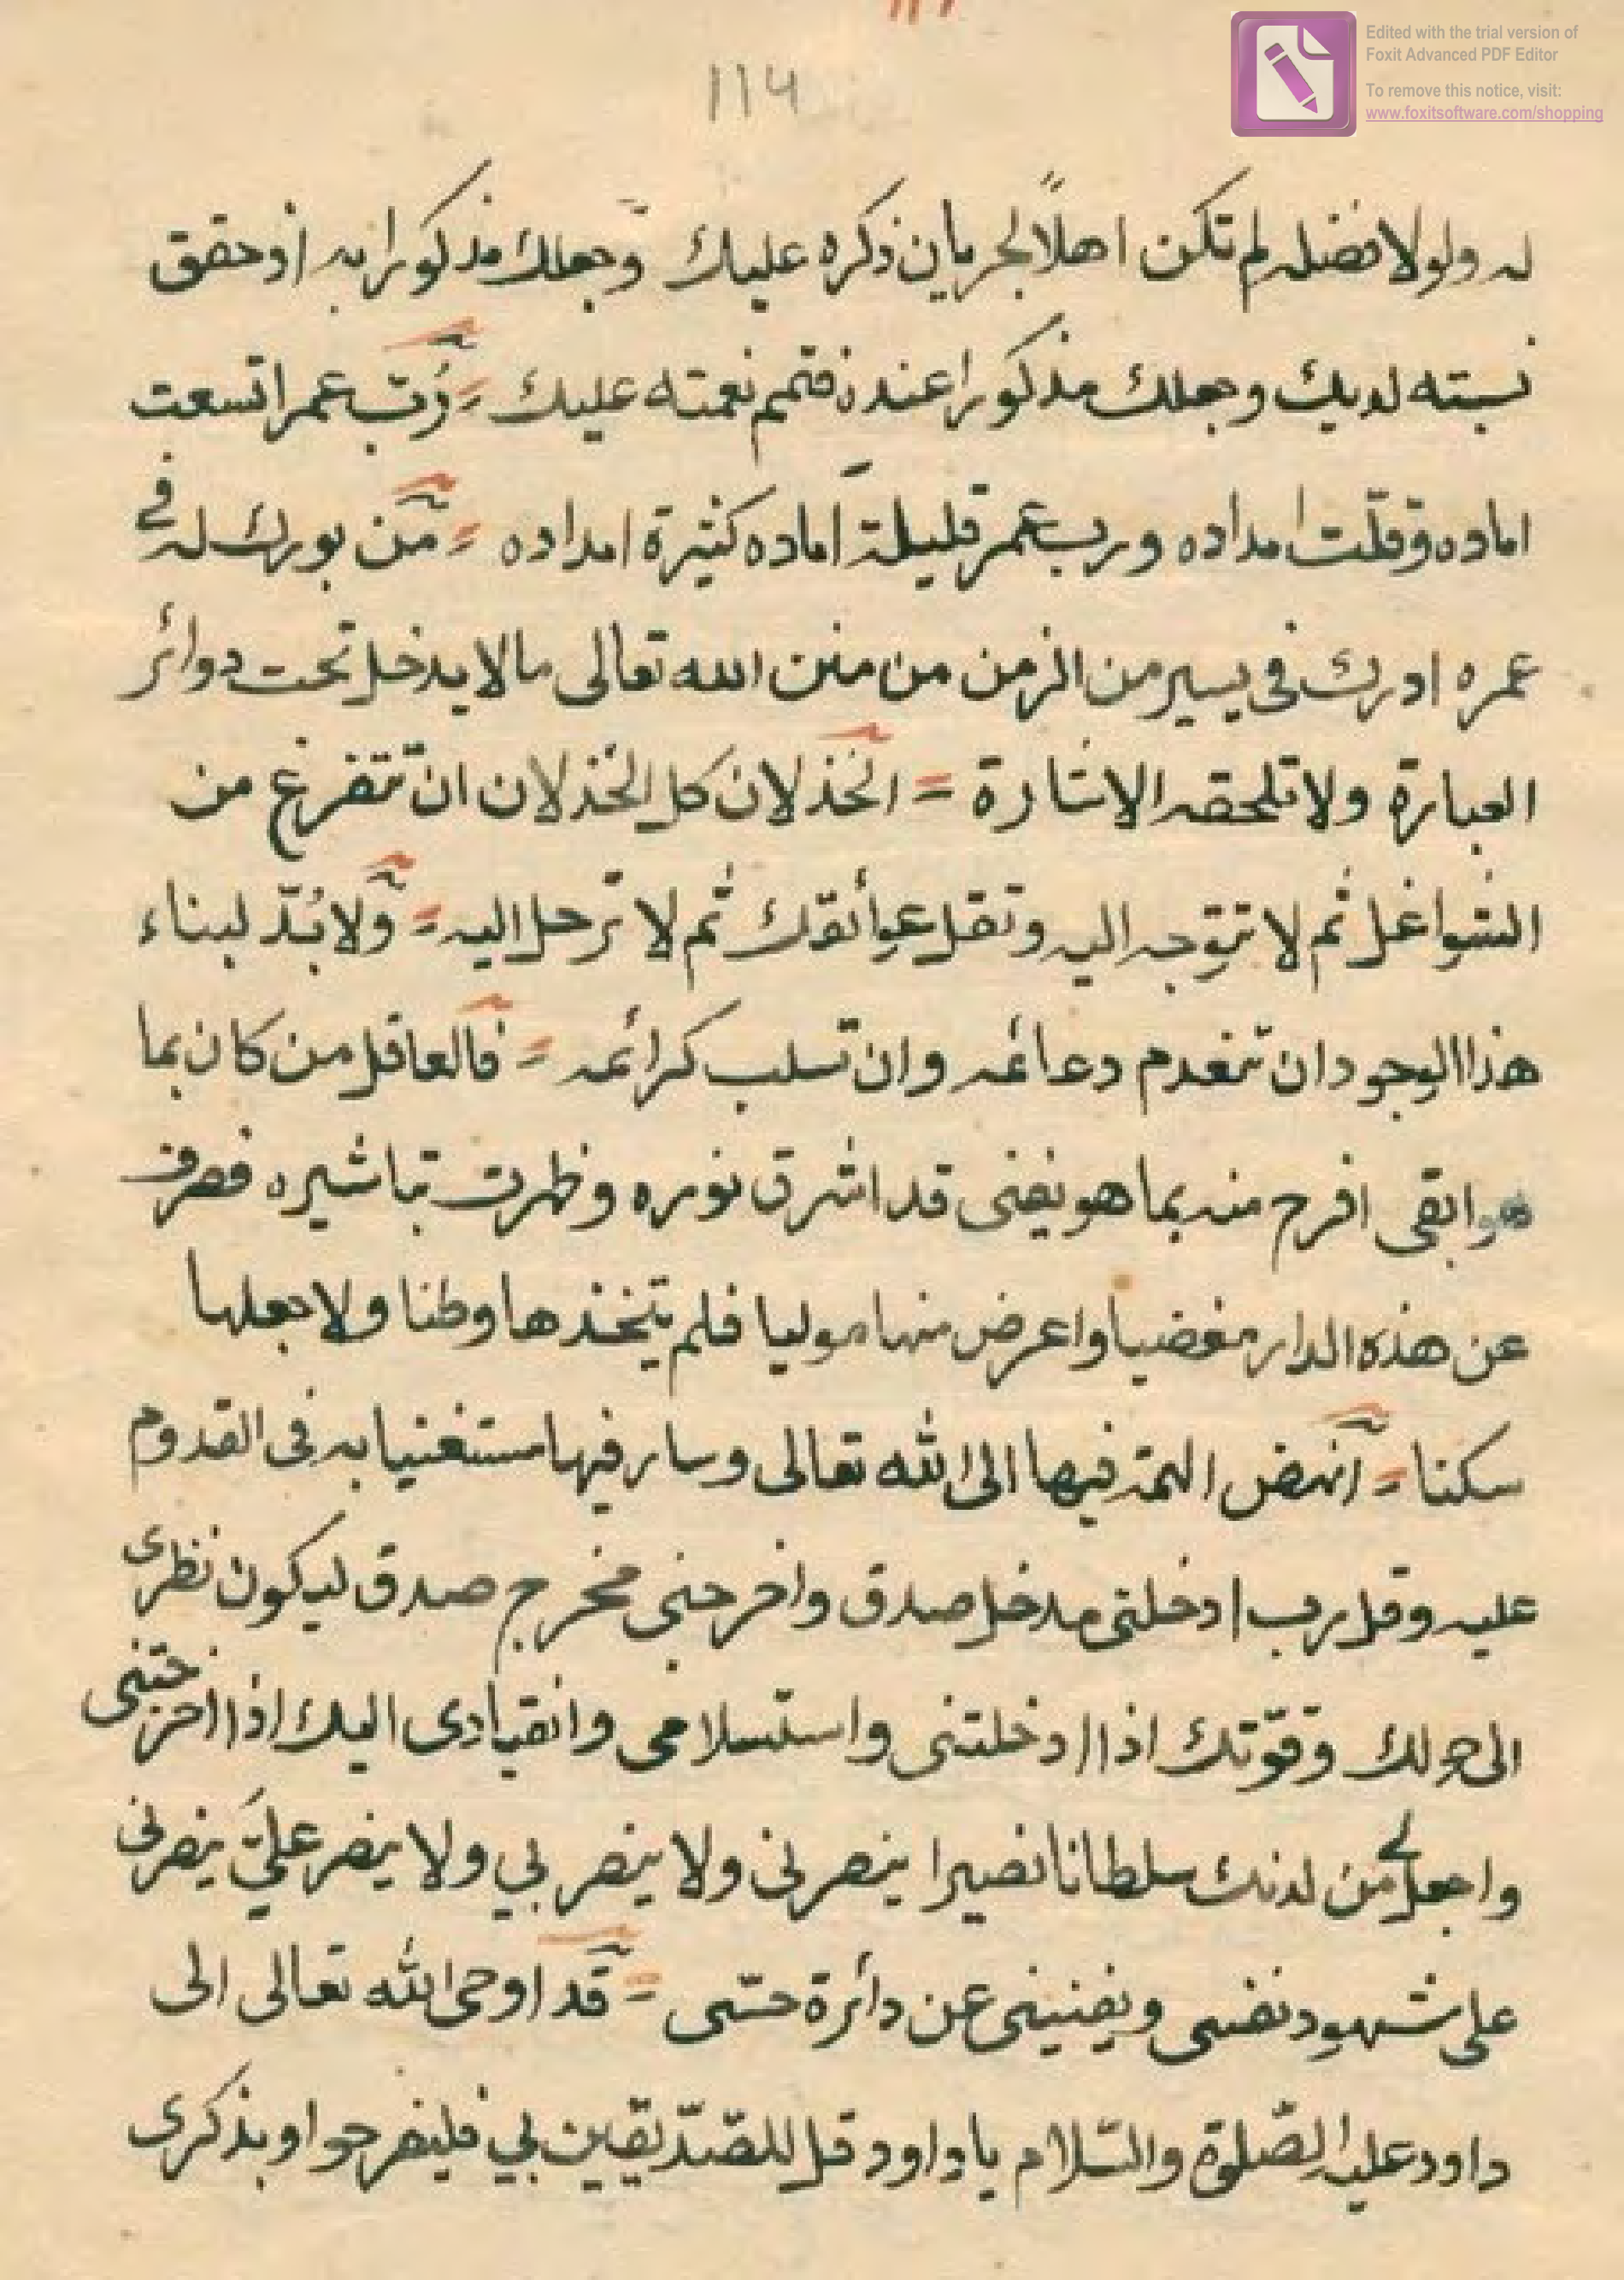 Edited with the trial version of
Foxit Advanced PDF Editor
To remove this notice, visit:
www.foxitsoftware.com/shopping
١١٤
له ولولا فضله لم تكن اهلاً لجريان ذكره عليك وجعلك مذكورا به اذ حقق
نسبته لديك وجعلك مذكورا عنده فتمم نعمته عليك = رُبّ عمر اتسعت
اماده وقلّت امداده ورب عمر قليلة اماده كثيرة امداده = من بورك له في
عمره ادرك في يسير من الزمن من منن الله تعالى ما لا يدخل تحت دوائر
العبارة ولا تلحقه الاشارة = الخذلان كل الخذلان ان تتفرغ من
الشواغل ثم لا تتوجه اليه وتقل عوائقك ثم لا ترحل اليه = ولا بُدّ لبناء
هذا الوجود ان تنهدم دعائمه وان تسلب كرائمه = فالعاقل من كان بما
هو ابقى افرح منه بما هو يفنى قد اشرق نوره وظهرت تباشيره فصرف
عن هذه الدار مغضيا واعرض منها موليا فلم يتخذها وطنا ولا جعلها
سكنا = انهض الهمة فيها الى الله تعالى وسار فيها مستغنيا به في القدوم
عليه وقل رب ادخلني مدخل صدق واخرجني مخرج صدق ليكون نظرى
الى حولك وقوّتك اذا ادخلتنى واستسلامى وانقيادى اليك اذا اخرجتنى
واجعل لي من لدنك سلطانا نصيرا ينصرنى ولا ينصر بي ولا ينصر عليَّ ينصرنى
على شهود نفسى ويفنينى عن دائرة حسّى = قد اوحى الله تعالى الى
داود عليه الصّلوة والسّلام يا داود قل للصّدّيقين بي فليفرحوا وبذكرى